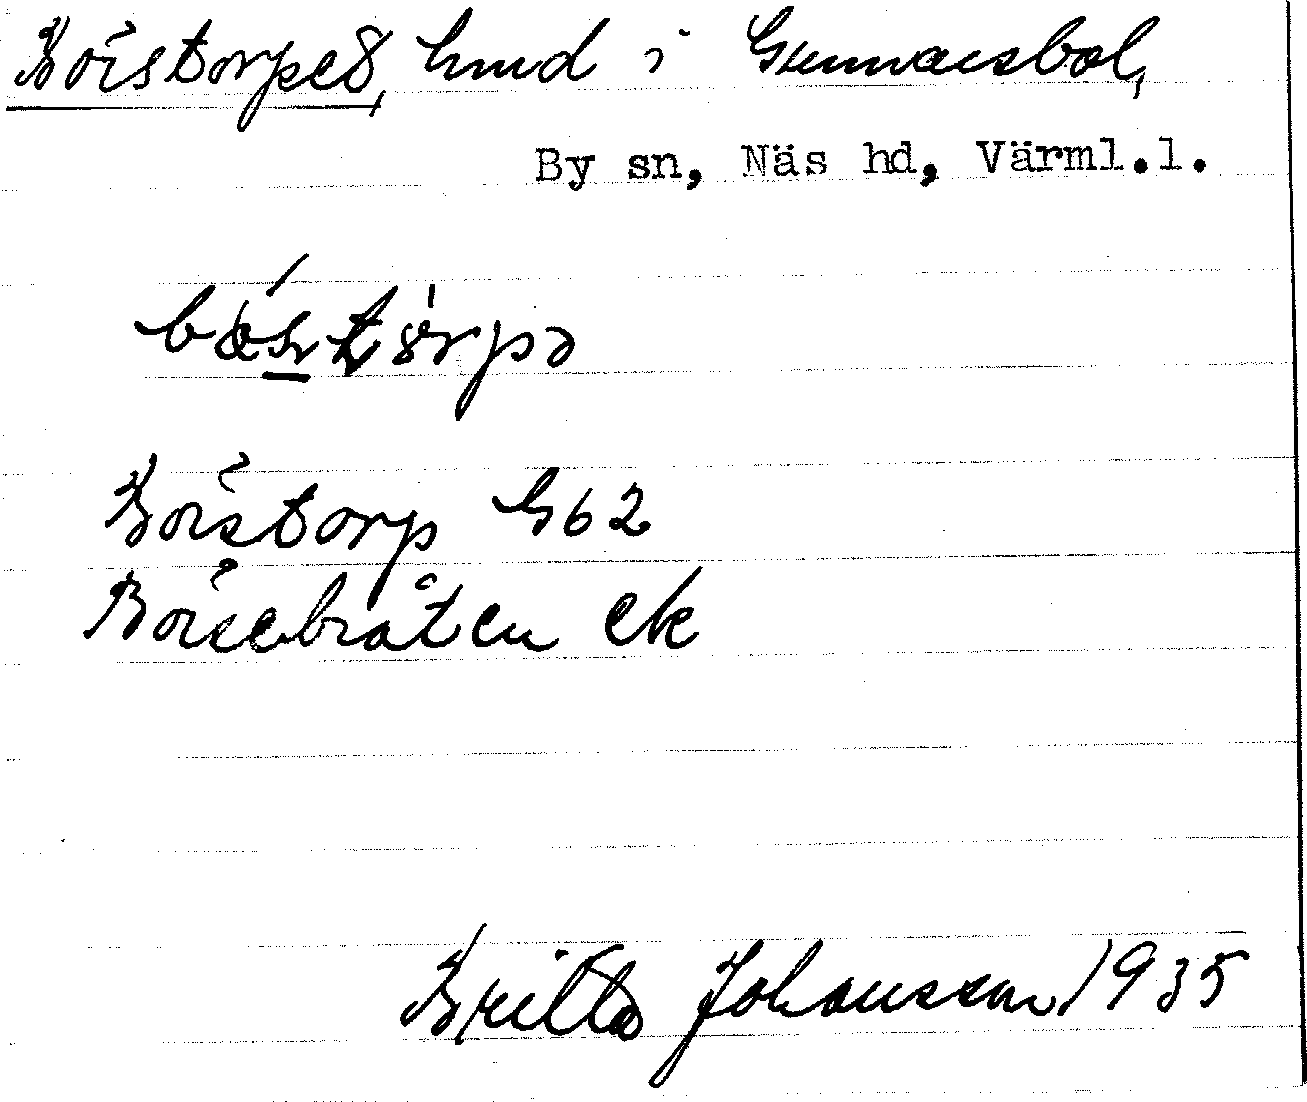 Börstorpet, hmd i Gunnarsbol,
By sn, Näs hd, Värml.l.
Börstorp G62
Börsebråten ek
Britta Johansson 1935